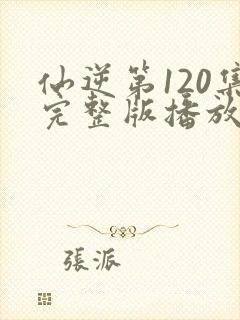 仙逆第120集
完整版播放
張派